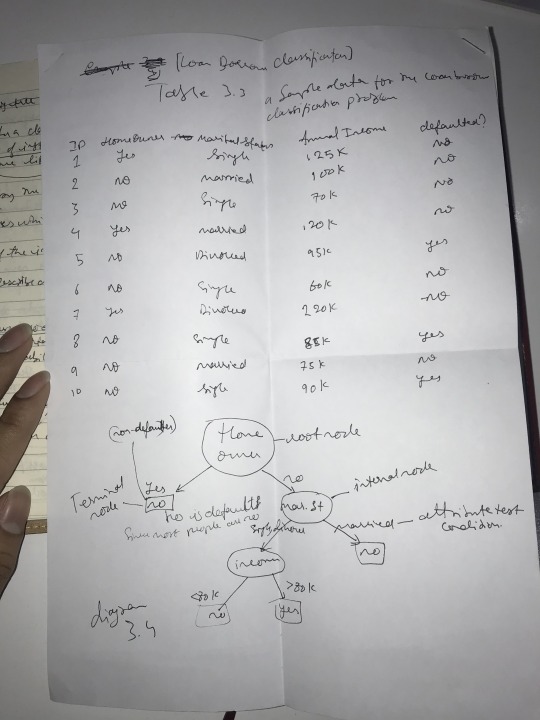 [Loan Borrow classification]
Table 3.3 a Sample data for the loan borrower
classification problem
ID HomeOwner Marital Status Annual Income defaulted?
1 Yes Single 125K no
2 no married 100K no
3 no Single 70K no
4 Yes married 120K no
5 no Divorced 95K yes
6 no Single 60K no
7 Yes Divorced 220K no
8 no Single 85K yes
9 no married 75K no
10 no Sigle 90K yes
(non-defaulter)
Home
owner
root node
Yes
no
Terminal
node
no
no is default
Since most people are no
mar.st
internal node
married
attribute test
condition
no
income
<80K
>80K
no
Yes
diagram
3.4